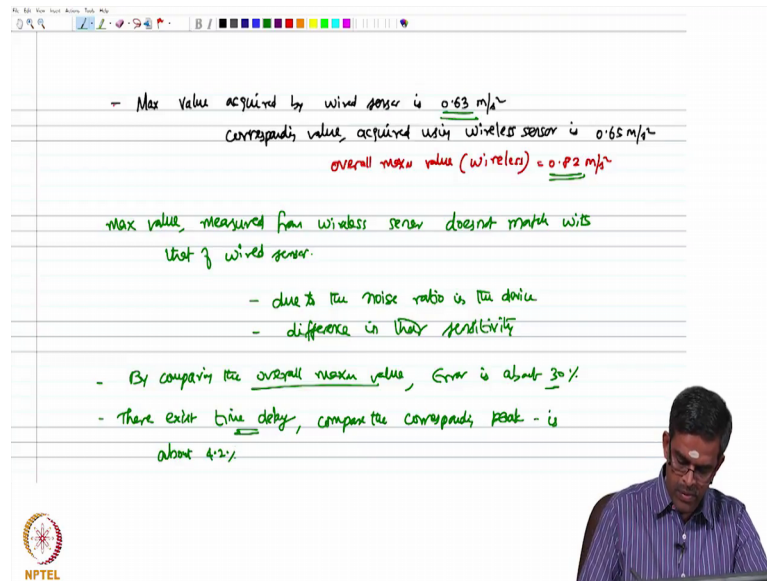 File Edit View Insert Actions Tools Help
B I
- Max value acquired by wired sensor is 0.63 m/s²
corresponding value, acquired using wireless sensor is 0.65 m/s²
overall maxm value (wireless) = 0.82 m/s²
max value, measured from wireless sensor doesnot match with
that of wired sensor.
- due to the noise ratio in the device
- difference in their sensitivity
- By comparing the overall maxm value, Error is about 30%
- There exist time delay, compare the corresponding peak - is
about 4.2%
NPTEL